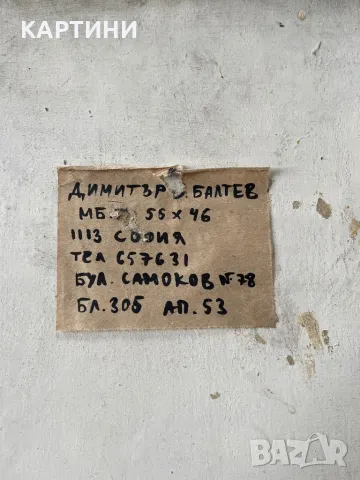 КАРТИНИ
ДИМИТЪР БАЛТЕВ
МБ 55 х 46
1113 СОФИЯ
ТЕЛ 657631
БУЛ. САМОКОВ №78
БЛ. 305 АП. 53
BAZAR